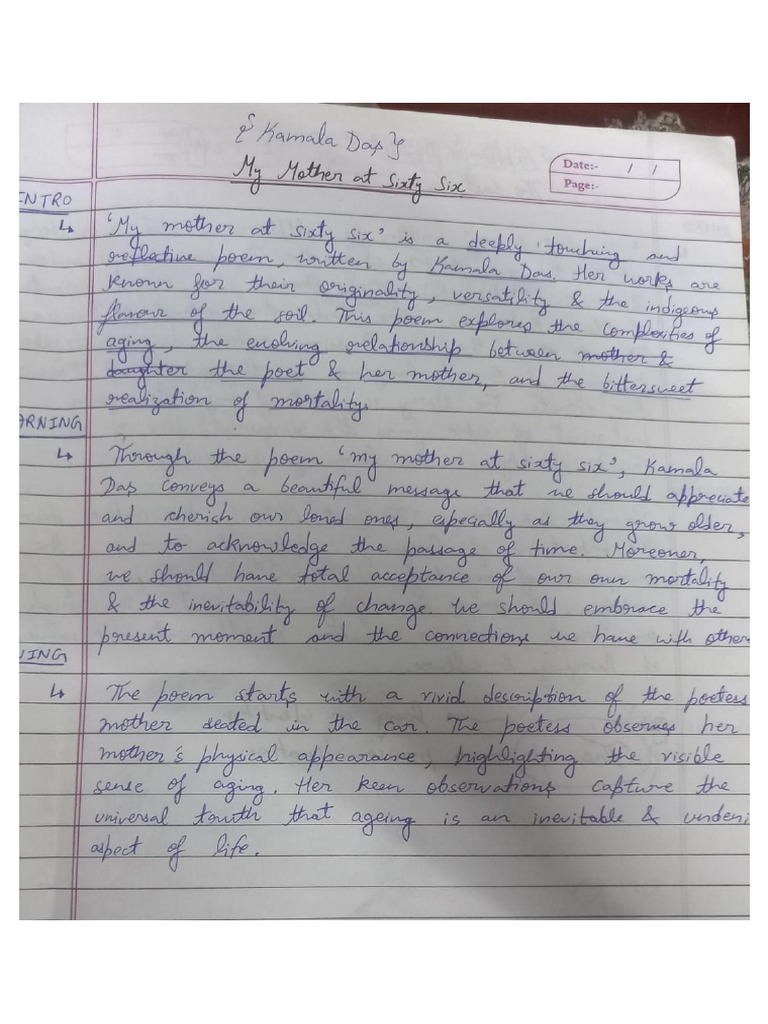 {Kamala Das}
My Mother at Sixty Six
Date:- / /
Page:-
INTRO
↳ 'My mother at sixty six' is a deeply touching and
reflective poem, written by Kamala Das. Her works are
known for their originality, versatility & the indigeous
flavour of the soil. This poem explores the complexities of
aging, the evolving relationship between mother &
daughter the poet & her mother, and the bittersweet
realization of mortality.
ARNING
↳ Through the poem 'my mother at sixty six', Kamala
Das conveys a beautiful message that we should appreciate
and cherish our loved ones, especially as they grow older,
and to acknowledge the passage of time. Moreover,
we should have total acceptance of our own mortality
& the inevitability of change. We should embrace the
present moment and the connections we have with other
ING
↳ The poem starts with a vivid description of the poetess
mother seated in the car. The poetess observes her
mother's physical appearance, highlighting the visible
sense of aging. Her keen observations capture the
universal truth that ageing is an inevitable & undeni
aspect of life.